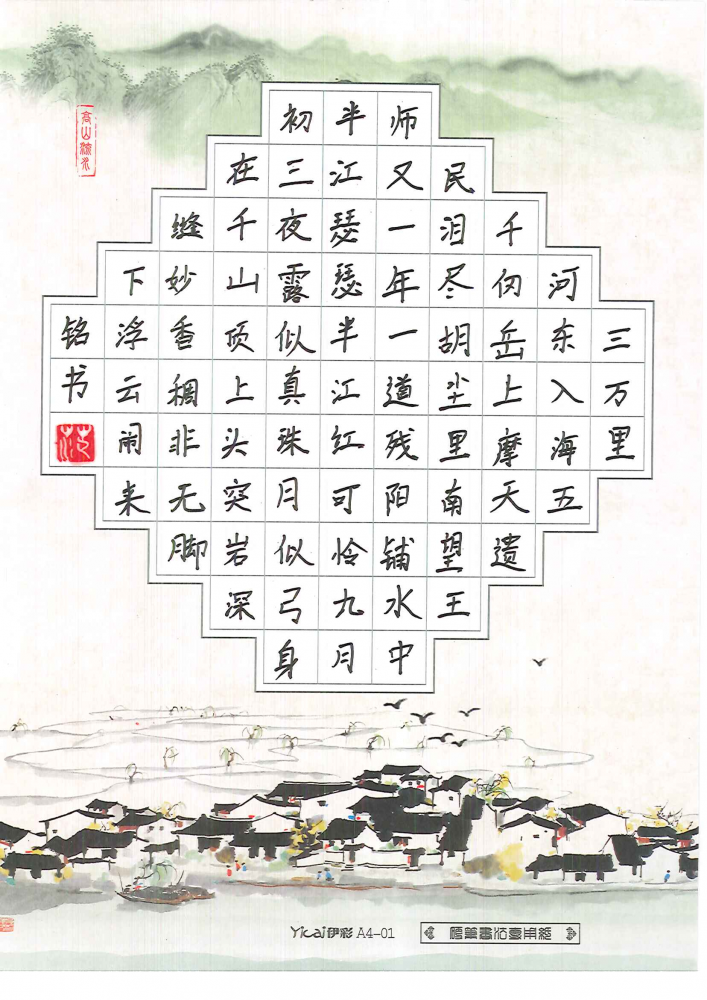 三万里
河东入海五
千仞岳上摩天遗
民泪尽胡尘里南望王
师又一年一道残阳铺水中
半江瑟瑟半江红可怜九月
初三夜露似真珠月似弓身
在千山顶上头突岩深
缝妙香稠非无脚
下浮云闹来
铭书
高山流水
Yicai伊彩 A4-01